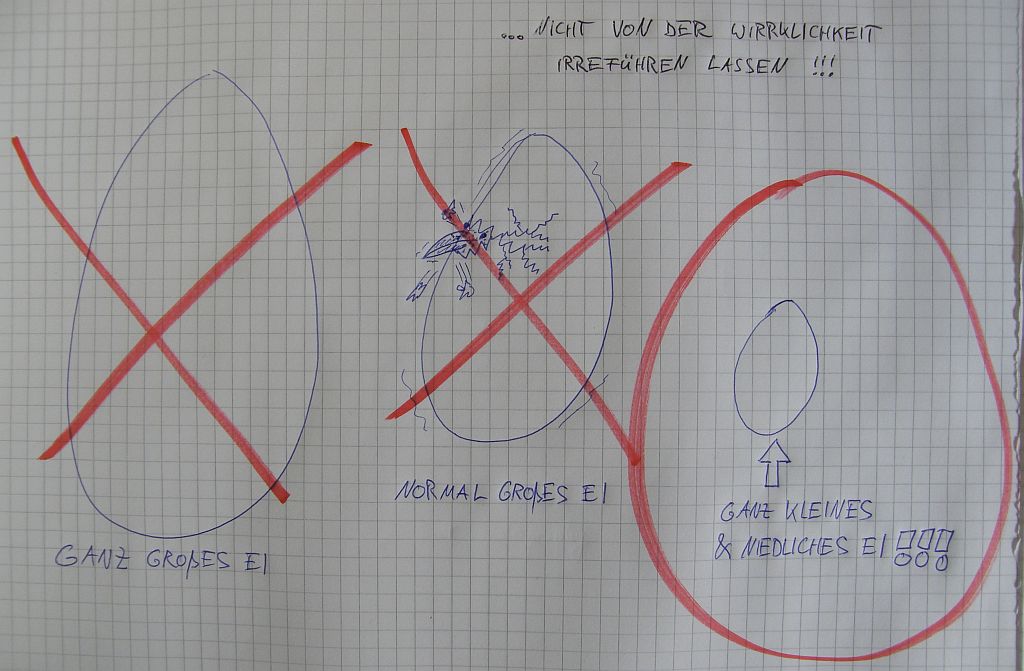 ... NICHT VON DER WIRRKLICHKEIT
IRREFÜHREN LASSEN !!!
GANZ GROßES EI
NORMAL GROßES EI
GANZ KLEINES
& NIEDLICHES EI !!!